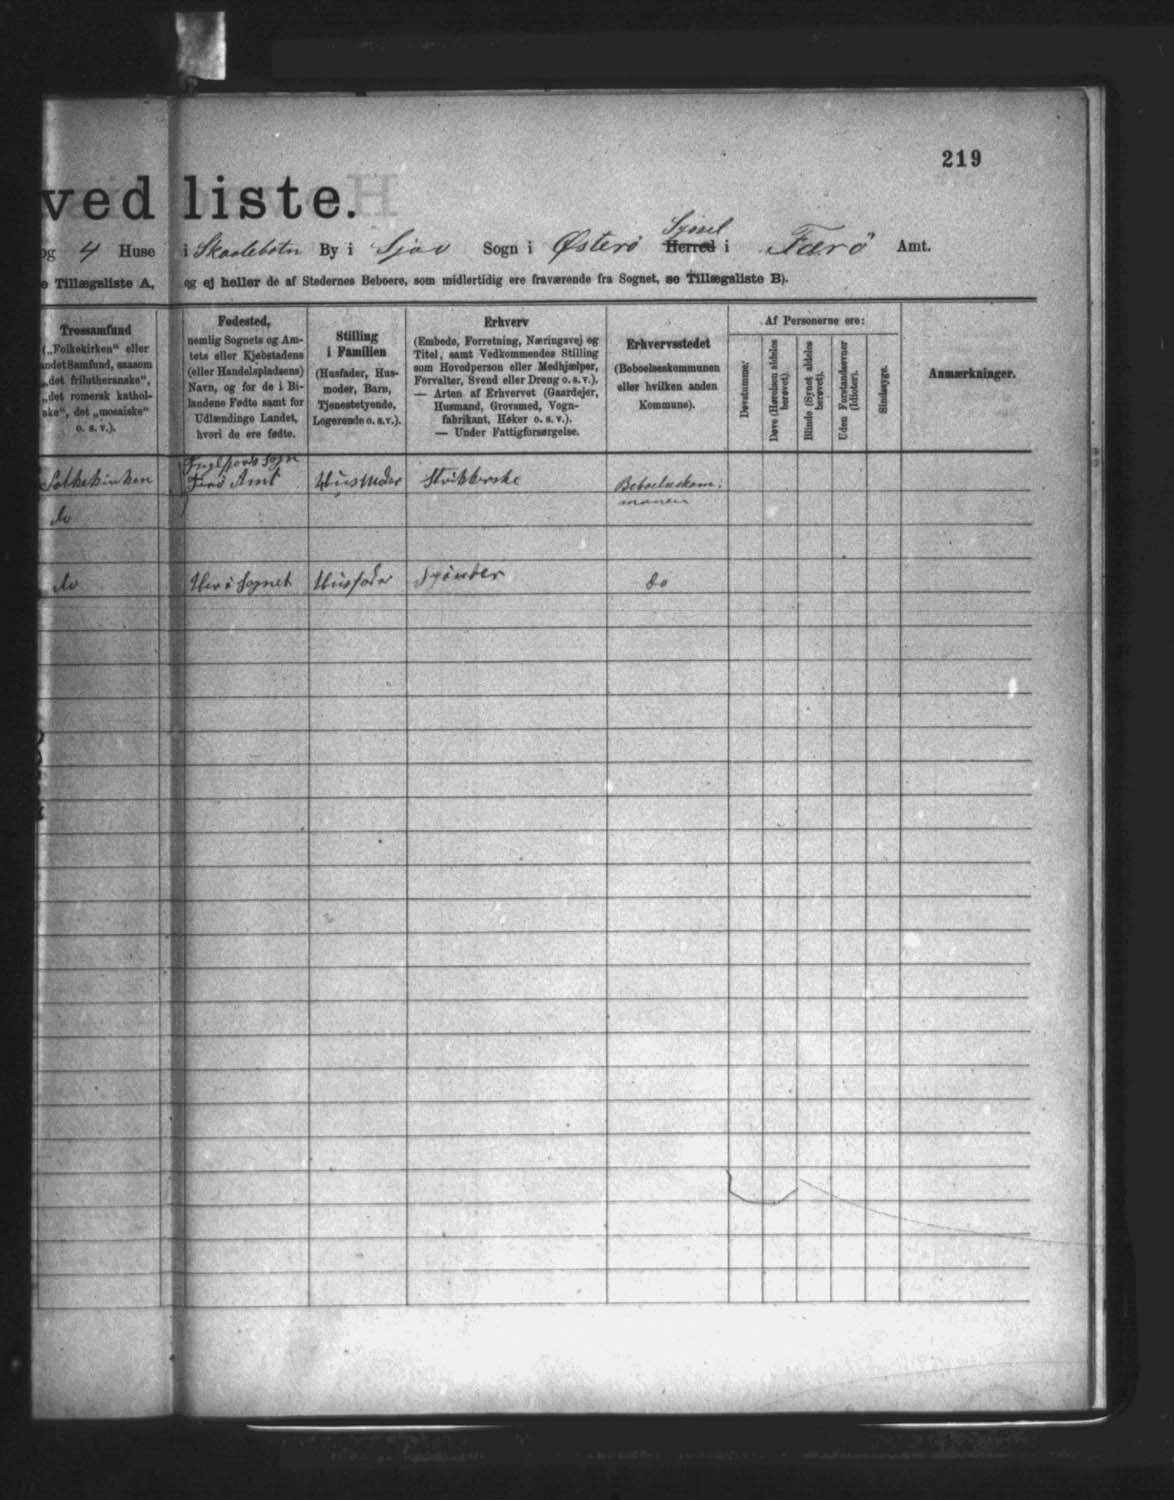 219
ved liste.
og 4 Huse i Skaalebotn By i Sjov Sogn i Østerø Herred Syssel i Færø Amt.
e Tillægsliste A, og ej heller de af Stedernes Beboere, som midlertidig ere fraværende fra Sognet, se Tillægsliste B).
Trossamfund
(„Folkekirken“ eller
andet Samfund, saasom
„det frilutheranske“,
„det romersk kathol-
ske“, det „mosaiske“
o. s. v.).
Fødested,
nemlig Sognets og Am-
tets eller Kjøbstadens
(eller Handelspladsens)
Navn, og for de i Bi-
landene Fødte samt for
Udlændinge Landet,
hvori de ere fødte.
Stilling
i Familien
(Husfader, Hus-
moder, Barn,
Tjenestetyende,
Logerende o. s. v.).
Erhverv
(Embede, Forretning, Næringsvej og
Titel, samt Vedkommendes Stilling
som Hovedperson eller Medhjælper,
Forvalter, Svend eller Dreng o. s. v.).
— Arten af Erhvervet (Gaardejer,
Husmand, Grovsmed, Vogn-
fabrikant, Høker o. s. v.).
— Under Fattigforsørgelse.
Erhvervsstedet
(Beboelseskommunen
eller hvilken anden
Kommune).
Af Personerne ere:
Døvstumme.
Døve (Hørelsen aldeles
berøvet).
Blinde (Synet aldeles
berøvet).
Uden Forstandsevner
(Idioter).
Sindssyge.
Anmærkninger.
Folkekirken Sogn Færø Amt Husmoder Strikkerske Beboelseskom.
munen
do
do Her i Sognet Husfader do